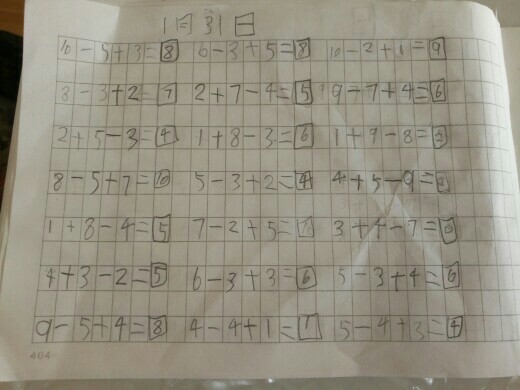 1月31日
10-5+3=8 6-3+5=8 10-2+1=9
8-3+2=7 2+7-4=5 9-7+4=6
2+5-3=4 1+8-3=6 1+9-8=2
8-5+7=10 5-3+2=4 4+5-9=
1+8-4=5 7-2+5= 3+4-7=0
4+3-2=5 6-3+3=6 5-3+4=6
9-5+4=8 4-4+1=1 5-4+3=4
404